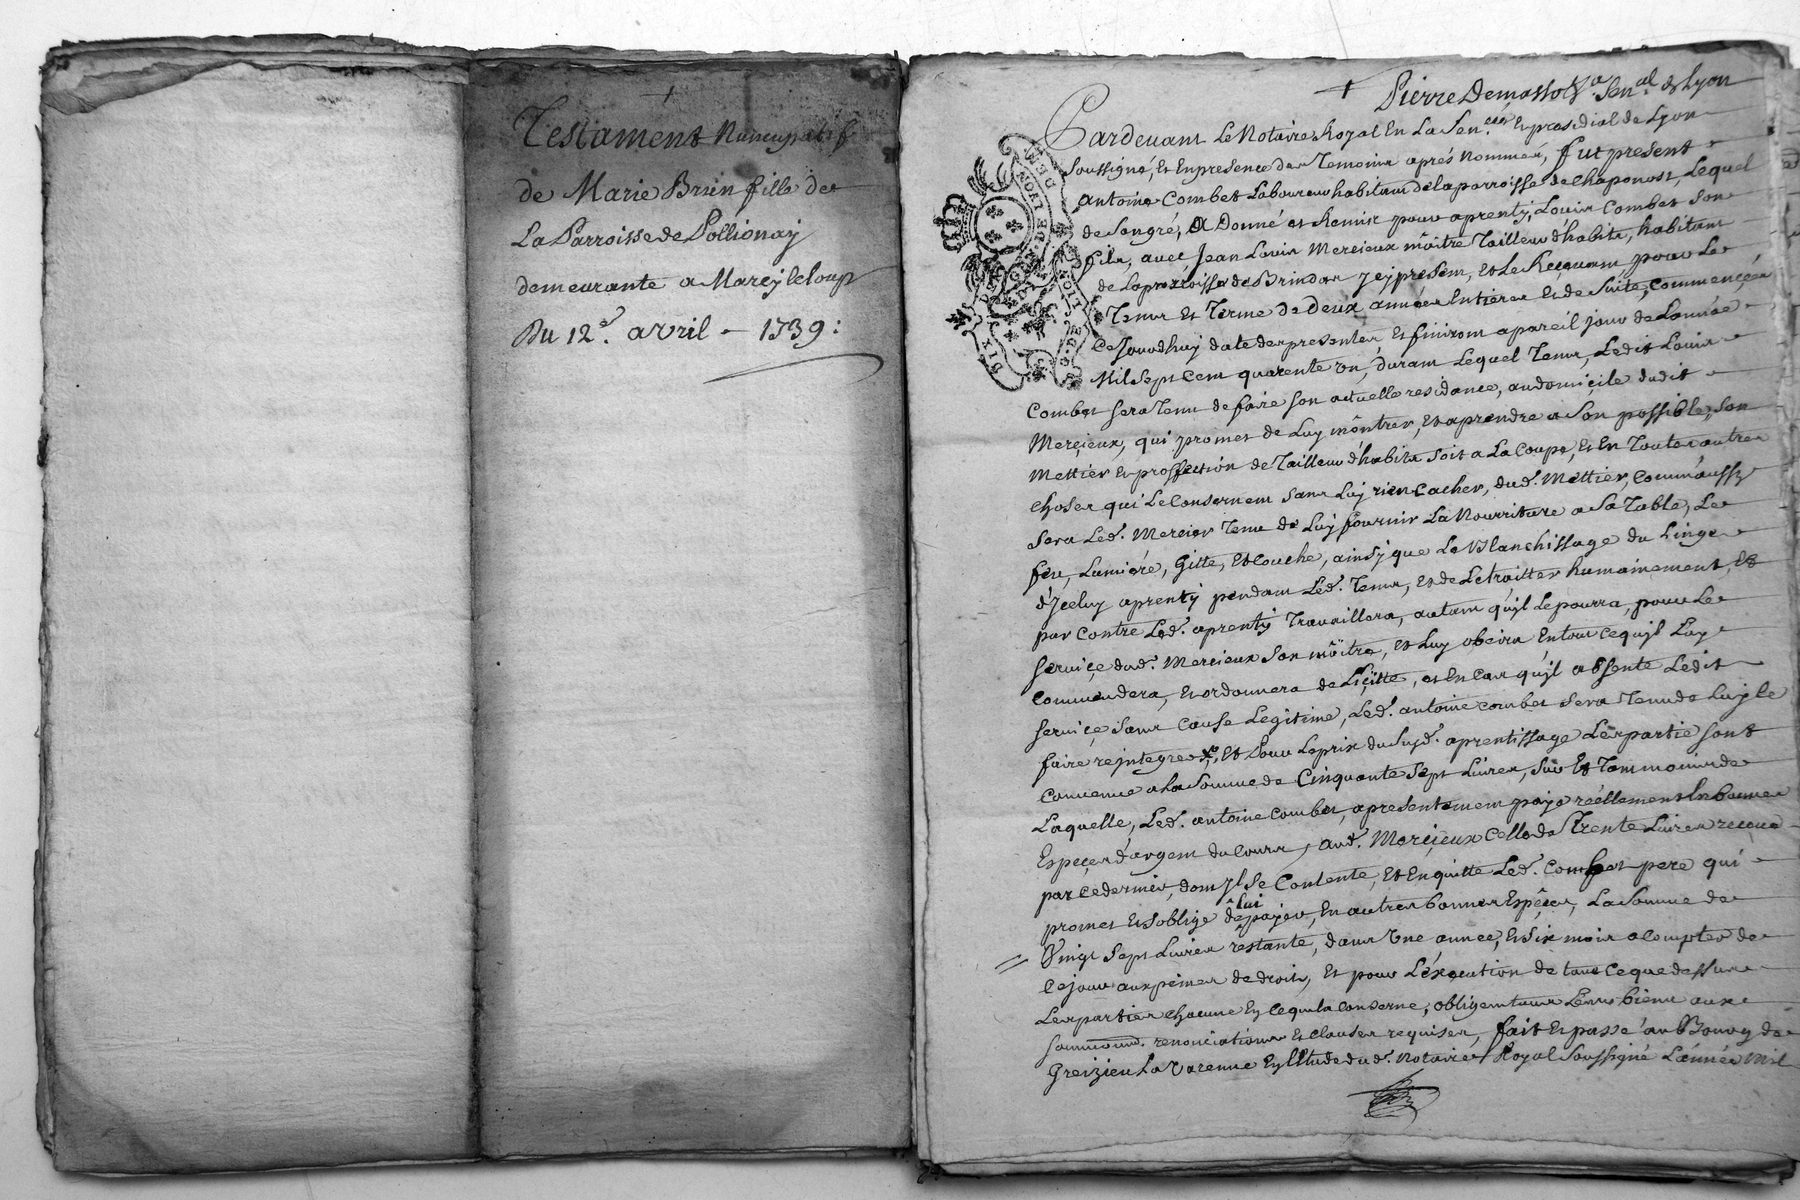 Testament Nuncupatif
de Marie Brun fille de
La Parroisse de Pollionay
demeurante a Marcy le loup
Du 12e. avril - 1739:
Pierre Demasso Sen.al de Lyon
Pardevant Le Notaire Royal En La Sen.ée Et presidial de Lyon
soussigné, et En presence des Temoins aprés Nommés, fut present
antoine Combet Laboureur habitant de la parroisse de Chaponost, Lequel
de Son gré, A Donné et Remis pour aprenty, Louis Combet Son
fils, avec Jean Louis Mercieux môitre Tailleur d'habits, habitant
de La parroisse de Brindas Jcy present, et Le Requerant pour Le
Tems et Terme de Deux années Entieres Et de Suite, commencées
Ce Jourdhuy datte des presentes, et finiront a pareil jour de L'année
Mil Sept Cent quarente un, durant Lequel Tems, Ledit Louis
Combet sera Tenu de faire son actuelle residance, au domicile dudit
Mercieux, qui promet de Luy môntrer, et aprendre a Son possible, Son
Mettier et proffession de Tailleur d'habits soit a La Coupe, et En Toutes autres
choses qui Le Conserneni sans Luy rien Cacher, dud. Mettier, Comm'aussy
Sera Led. Mercier Tenu de Luy fournir La Nourriture a Sa Table, Le
feu, Lumiére, Gitte, Et Couche, ainsy que Le Blanchissage du Linge
d'Jceluy aprenty pendant Led. Tems, et de Le traitter humainement, Et
par Contre Led. aprenty Travaillera, autant qu'jl Le pourra, pour Le
service dud. Mercieux Son môitre, et Luy obeira En tout ce qu'jl Luy
Commandera, et ordonnera de Licitte, et En Cas qu'jl absente Ledit
service Sans Cause Legitime, Led. antoine Combet Sera Tenu de Luy le
faire rejntegrer, Et Pour Le prix du Susd. aprentissage Les partie sont
Convenue a La Somme de Cinquante Sept Livres, Sur Et Tanmoins de
Laquelle, Led. antoine Combet, a presentement payé réellement En bonnes
Espeçes d'argent du Cours, aud. Mercieux Celle de Trente Livres receue
par ce dernier, dont Jl Se Contente, Et En quitte Led. Combet pere qui
promet Et S'oblige de lui payer, En autres bonnes Espêçes, La Somme de
Vingt Sept Livres restante, dans Une année, et Six mois a Compter de
Ce jour aux peines de droits, Et pour L'éxecution de tout Ce que dessus
Les parties chacune En Ce qui la Conserne, obligent tous Leurs biens aux
soumiond. renonciations et Clauses requises, fait Et passé au Bourg de
Greizieu La Varenne En L'Etude dud. Notaire Royal Soussigné L'année Mil